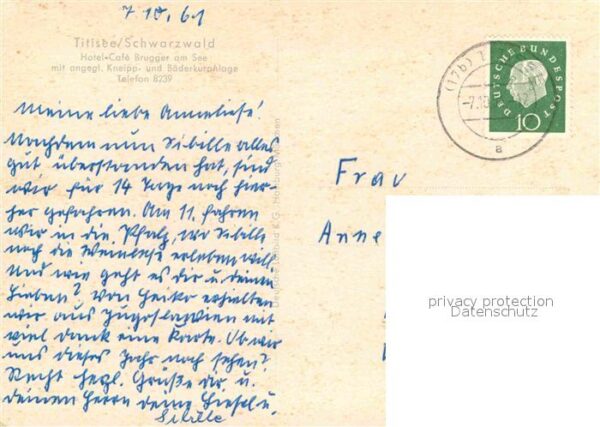 7.10.61
Titisee/Schwarzwald
Hotel-Café Brugger am See
mit angegl. Kneipp- und Bäderkuranlage
Telefon 8239
Meine liebe Anneliese!
Nachdem nun Sibille alles
gut überstanden hat, sind
wir für 14 Tage noch hier-
her gefahren. Am 11. fahren
wir in die Pfalz, wo Sibille
noch die Weinlese erleben will.
Und wie geht es dir u. deinen
Lieben? Von Heiko erhielten
wir aus Jugoslawien mit
viel Dank eine Karte. Ob wir
uns dieses Jahr noch sehen?
Recht herzl. Grüße dir u.
deinem Herrn deine Liesel u.
Sibille
(17b)
-7.10
a
DEUTSCHE BUNDESPOST
10
Frau
Anne
privacy protection
Datenschutz